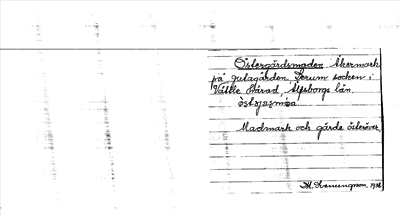 Östergårdsmaden Åkermark
på gutagården, Lerum socken i
Vättle Härad, Älfsborgs län.
östgasmåa
Madmark och gärde österöver.
M. Henningson. 1928